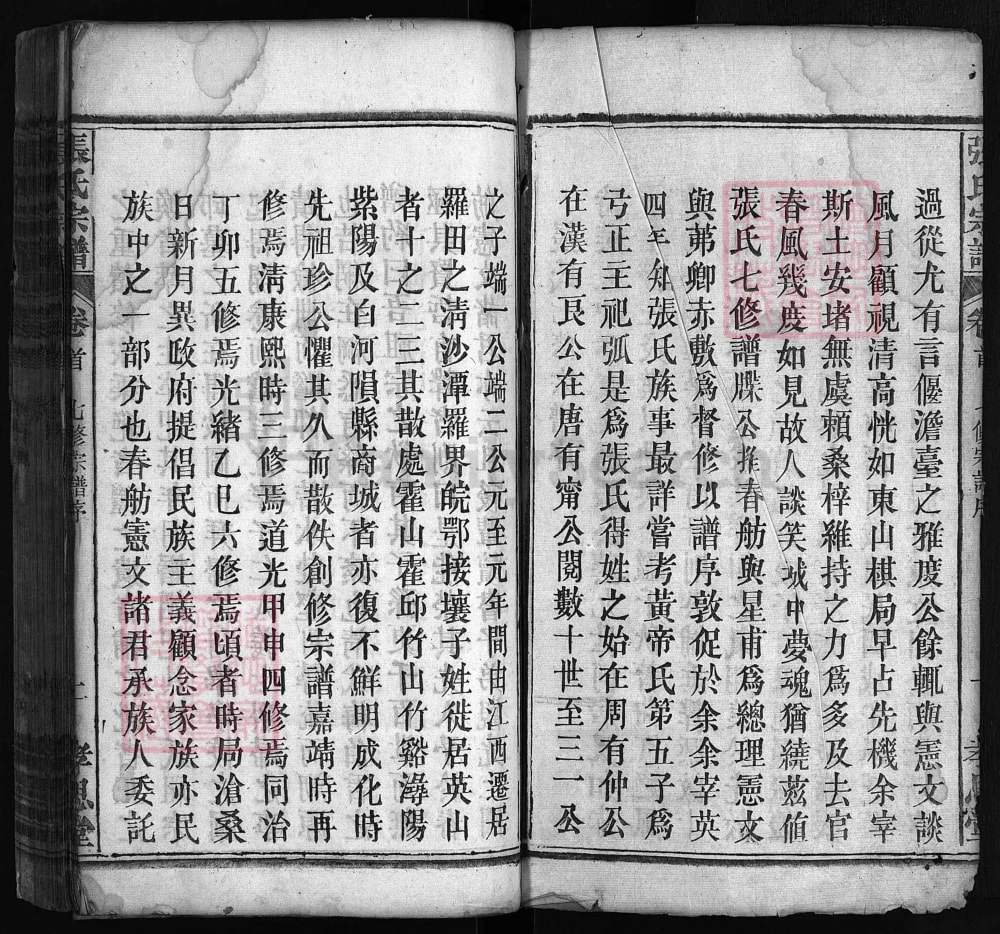 過從尤有言偃澹臺之雅度公餘輒與憲文談
風月顧視清高恍如東山棋局早占先機余宰
斯土安堵無虞賴桑梓維持之力爲多及去官
春風幾度如見故人談笑城中夢魂猶繞茲值
張氏七修譜牒公推春舫與星甫爲總理憲文
與茀卿赤敷爲督修以譜序敦促於余余宰英
四年知張氏族事最詳嘗考黃帝氏第五子爲
弓正主祀弧是爲張氏得姓之始在周有仲公
在漢有艮公在唐有甯公閱數十世至三一公
之子端一公端二公元至元年間由江西遷居
羅田之淸沙潭羅界皖鄂接壤子姓徙居英山
者十之二三其散處霍山霍邱竹山竹谿潯陽
紫陽及白河隕縣商城者亦復不鮮明成化時
先祖珍公懼其久而散佚創修宗譜嘉靖時再
修焉淸康熙時三修焉道光甲申四修焉同治
丁卯五修焉光緒乙巳六修焉頃者時局滄桑
日新月異政府提倡民族主義顧念家族亦民
族中之一部分也春舫憲文諸君承族人委託
張氏宗譜
卷首
七修宗譜序
孝思堂